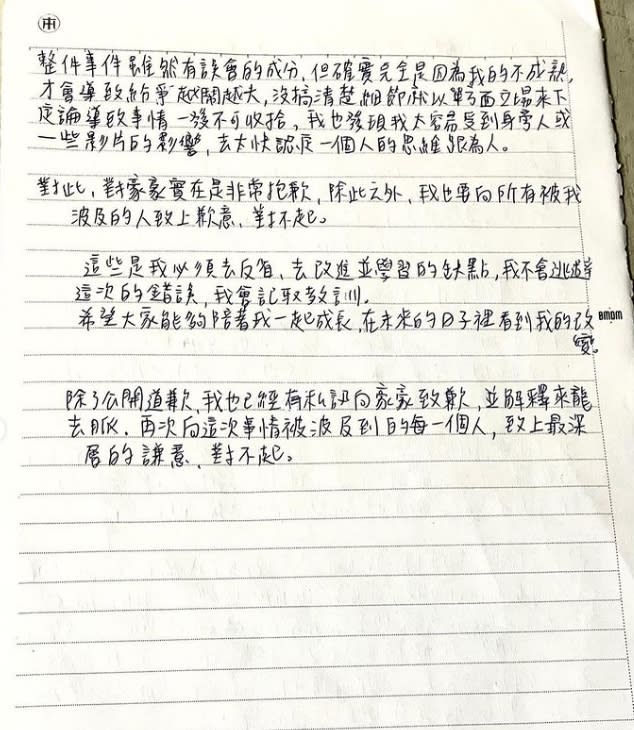 整件事件雖然有誤會的成分,但確實完全是因為我的不成熟,
才會導致紛爭越鬧越大,沒搞清楚細節就以單方面立場來下
定論導致事情一發不可收拾,我也發現我太容易受到身旁人或
一些影片的影響,去太快認定一個人的思維跟為人。
對此,對家豪實在是非常抱歉,除此之外,我也要向所有被我
波及的人致上歉意,對不起。
這些是我必須去反省、去改進並學習的缺點,我不會逃避
這次的錯誤,我會記取教訓。
希望大家能夠陪著我一起成長,在未來的日子裡看到我的改
變。
bmdm
除了公開道歉,我也已經有私訊向家豪致歉,並解釋來龍
去脈,再次向這次事情被波及到的每一個人,致上最深
層的謙意,對不起。